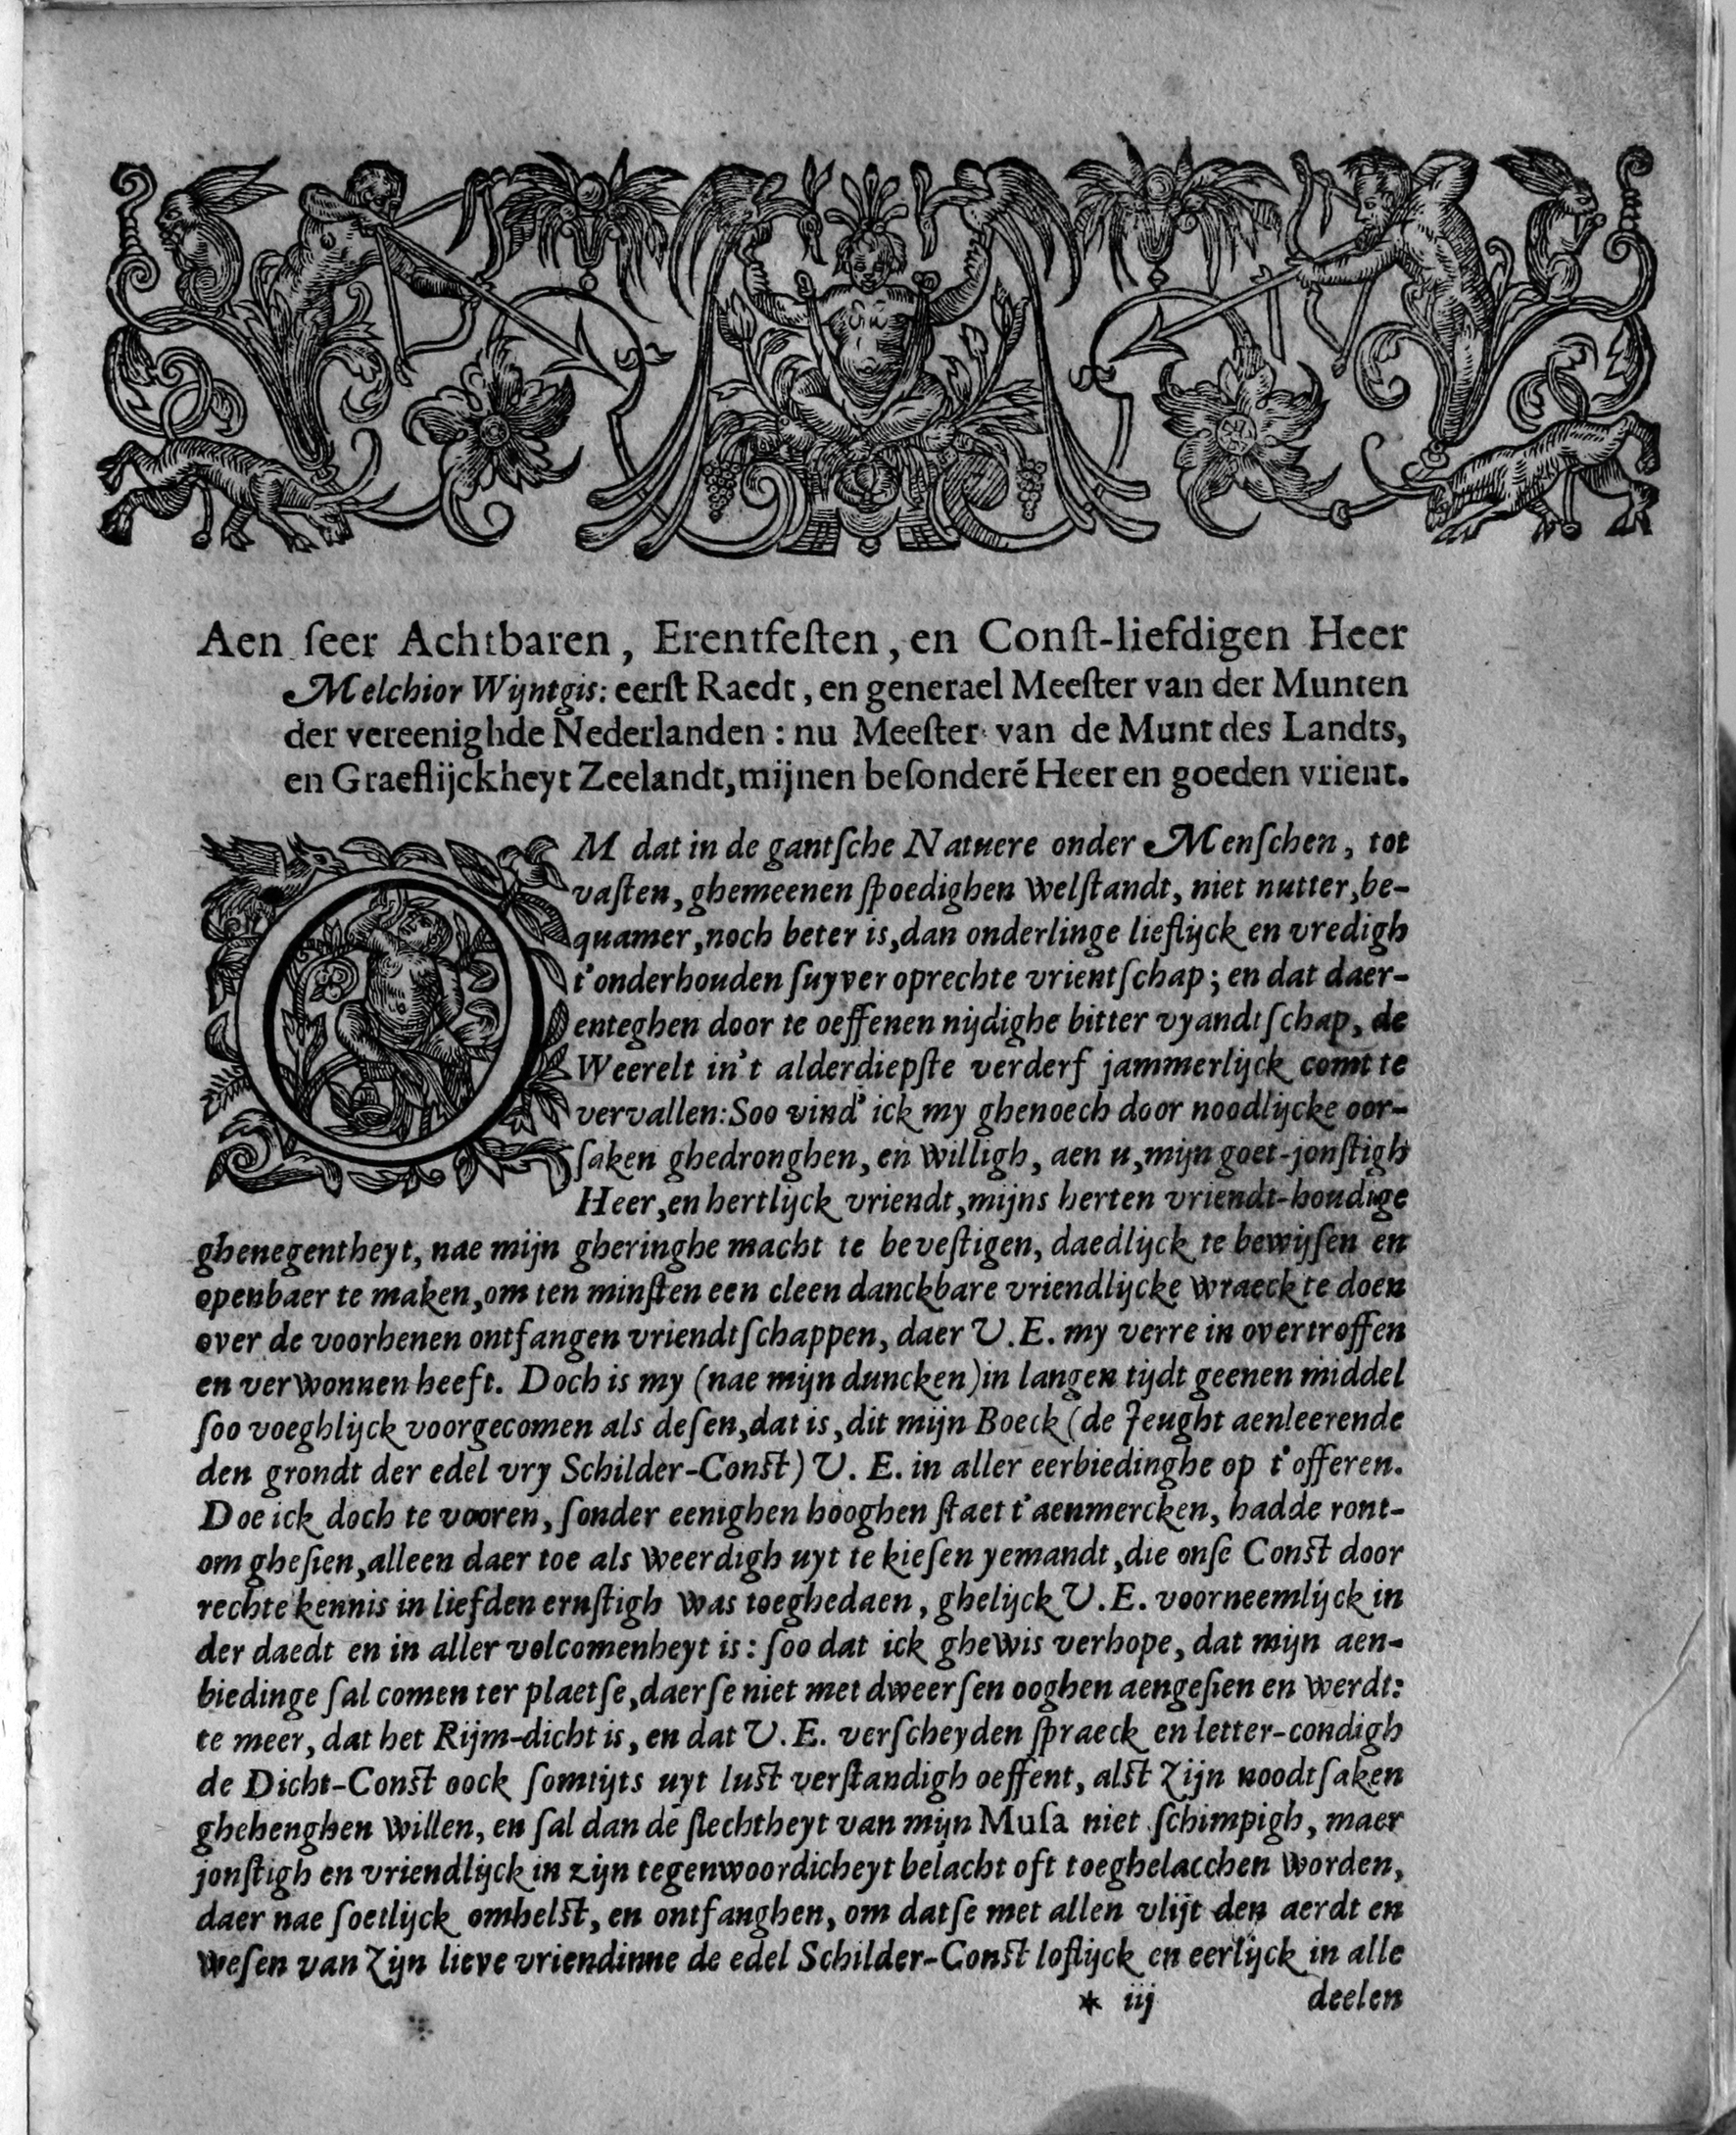 Aen ſeer Achtbaren, Erentfeſten, en Conſt-liefdigen Heer
Melchior Wijntgis: eerſt Raedt, en generael Meeſter van der Munten
der vereenighde Nederlanden: nu Meeſter van de Munt des Landts,
en Graeflijckheyt Zeelandt, mijnen beſonderē Heer en goeden vrient.
OM dat in de gantſche Natuere onder Menſchen, tot
vaſten, ghemeenen ſpoedighen welſtandt, niet nutter, be-
quamer, noch beter is, dan onderlinge lieflijck en vredigh
t'onderhouden ſuyver oprechte vrientſchap; en dat daer-
enteghen door te oeffenen nijdighe bitter vyandtſchap, de
Weerelt in't alderdiepſte verderf jammerlijck comt te
vervallen: Soo vind' ick my ghenoech door noodlijcke oor-
ſaken ghedronghen, en willigh, aen u, mijn goet-jonſtigh
Heer, en hertlijck vriendt, mijns herten vriendt-houdige
ghenegentheyt, nae mijn gheringhe macht te beveſtigen, daedlijck te bewijſen en
openbaer te maken, om ten minſten een cleen danckbare vriendlijcke wraeck te doen
over de voorhenen ontfangen vriendtſchappen, daer U.E. my verre in overtroffen
en verwonnen heeft. Doch is my (nae mijn duncken) in langen tijdt geenen middel
ſoo voeghlijck voorgecomen als deſen, dat is, dit mijn Boeck (de Jeught aenleerende
den grondt der edel vry Schilder-Conſt) U. E. in aller eerbiedinghe op t'offeren.
Doe ick doch te vooren, ſonder eenighen hooghen ſtaet t'aenmercken, hadde ront-
om gheſien, alleen daer toe als weerdigh uyt te kieſen yemandt, die onſe Conſt door
rechte kennis in liefden ernſtigh was toeghedaen, ghelijck U.E. voorneemlijck in
der daedt en in aller volcomenheyt is: ſoo dat ick ghewis verhope, dat mijn aen-
biedinge ſal comen ter plaetſe, daerſe niet met dweerſen ooghen aengeſien en werdt:
te meer, dat het Rijm-dicht is, en dat U.E. verſcheyden ſpraeck en letter-condigh
de Dicht-Conſt oock ſomtijts uyt luſt verſtandigh oeffent, alſt zijn noodtſaken
ghehenghen willen, en ſal dan de ſlechtheyt van mijn Muſa niet ſchimpigh, maer
jonſtigh en vriendlijck in zijn tegenwoordicheyt belacht oft toeghelacchen worden,
daer nae ſoetlijck omhelſt, en ontfanghen, om datſe met allen vlijt den aerdt en
weſen van zijn lieve vriendinne de edel Schilder-Conſt loflijck en eerlijck in alle
* iij deelen